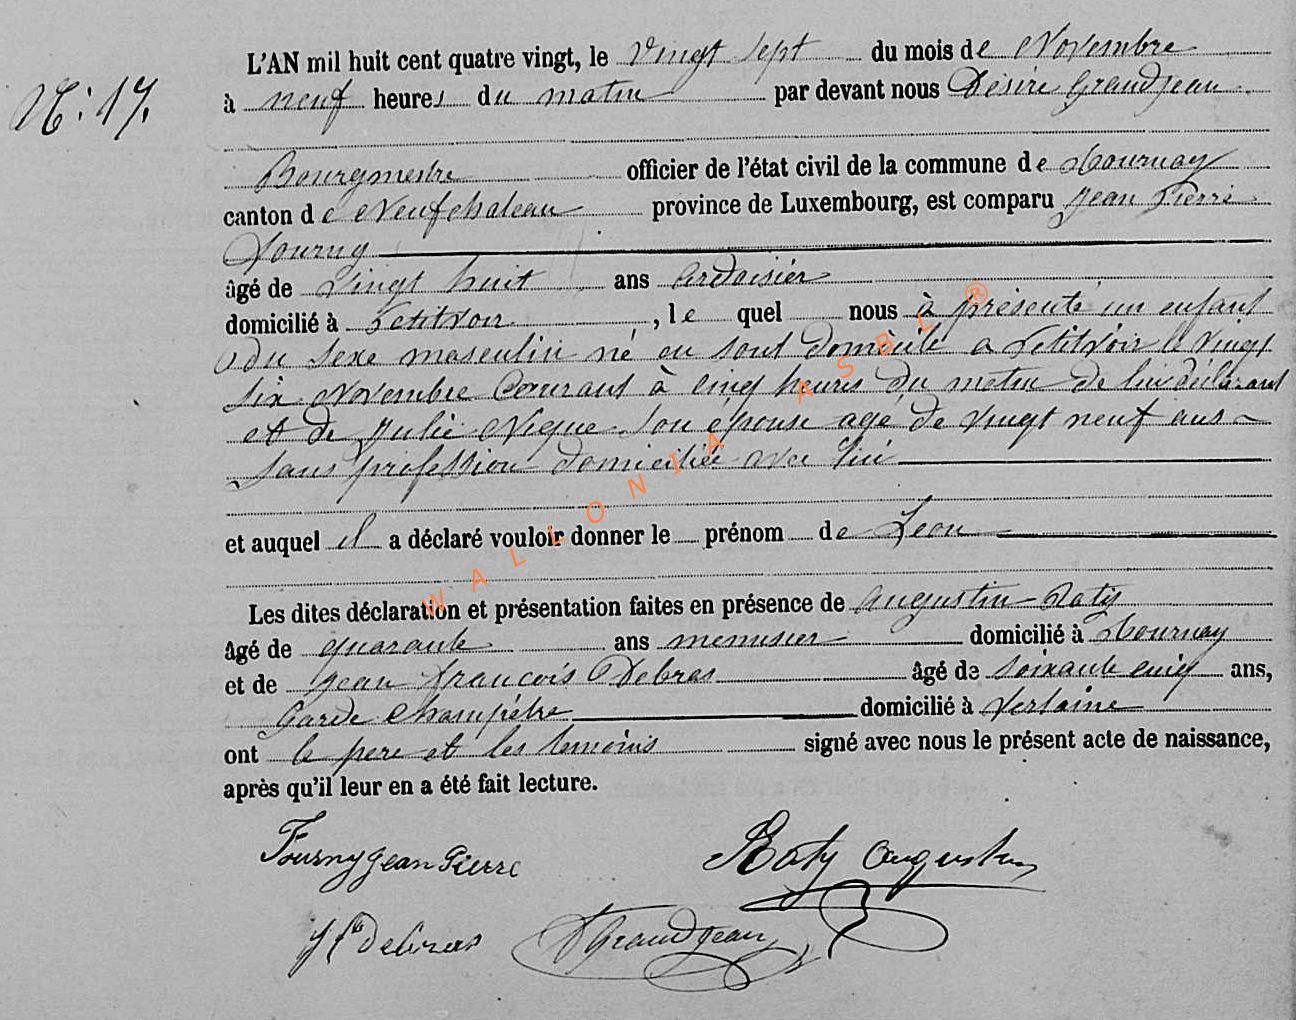 L'AN mil huit cent quatre vingt, le Vingt Sept du mois de Novembre
N: 17.
à neuf heures du matin par devant nous Désiré Grandjean
Bourgmestre officier de l'état civil de la commune de Tournay
canton de Neufchateau province de Luxembourg, est comparu Jean Pierre
Fourny
âgé de Vingt huit ans ardoisier
domicilié à Petitvoir, le quel nous à présenté un enfant
du sexe masculin né en sont domicile a Petitvoir le Vingt
six Novembre Courant à Cinq heures du matin de lui déclarant
et de Julie Nique son épouse agé de Vingt neuf ans
sans profession domiciliée avec lui
et auquel il a déclaré vouloir donner le prénom de Léon
Les dites déclaration et présentation faites en présence de Augustin Raty
âgé de quarante ans menusier domicilié à Tournay
et de Jean François Debras âgé de soixante cinq ans,
Garde Champêtre domicilié à Verlaine
ont le pere et les temoins signé avec nous le présent acte de naissance,
après qu'il leur en a été fait lecture.
Fourny Jean Pierre Raty Augustin
Jf Debras DGrandjean
WALLONIA ASBL ®